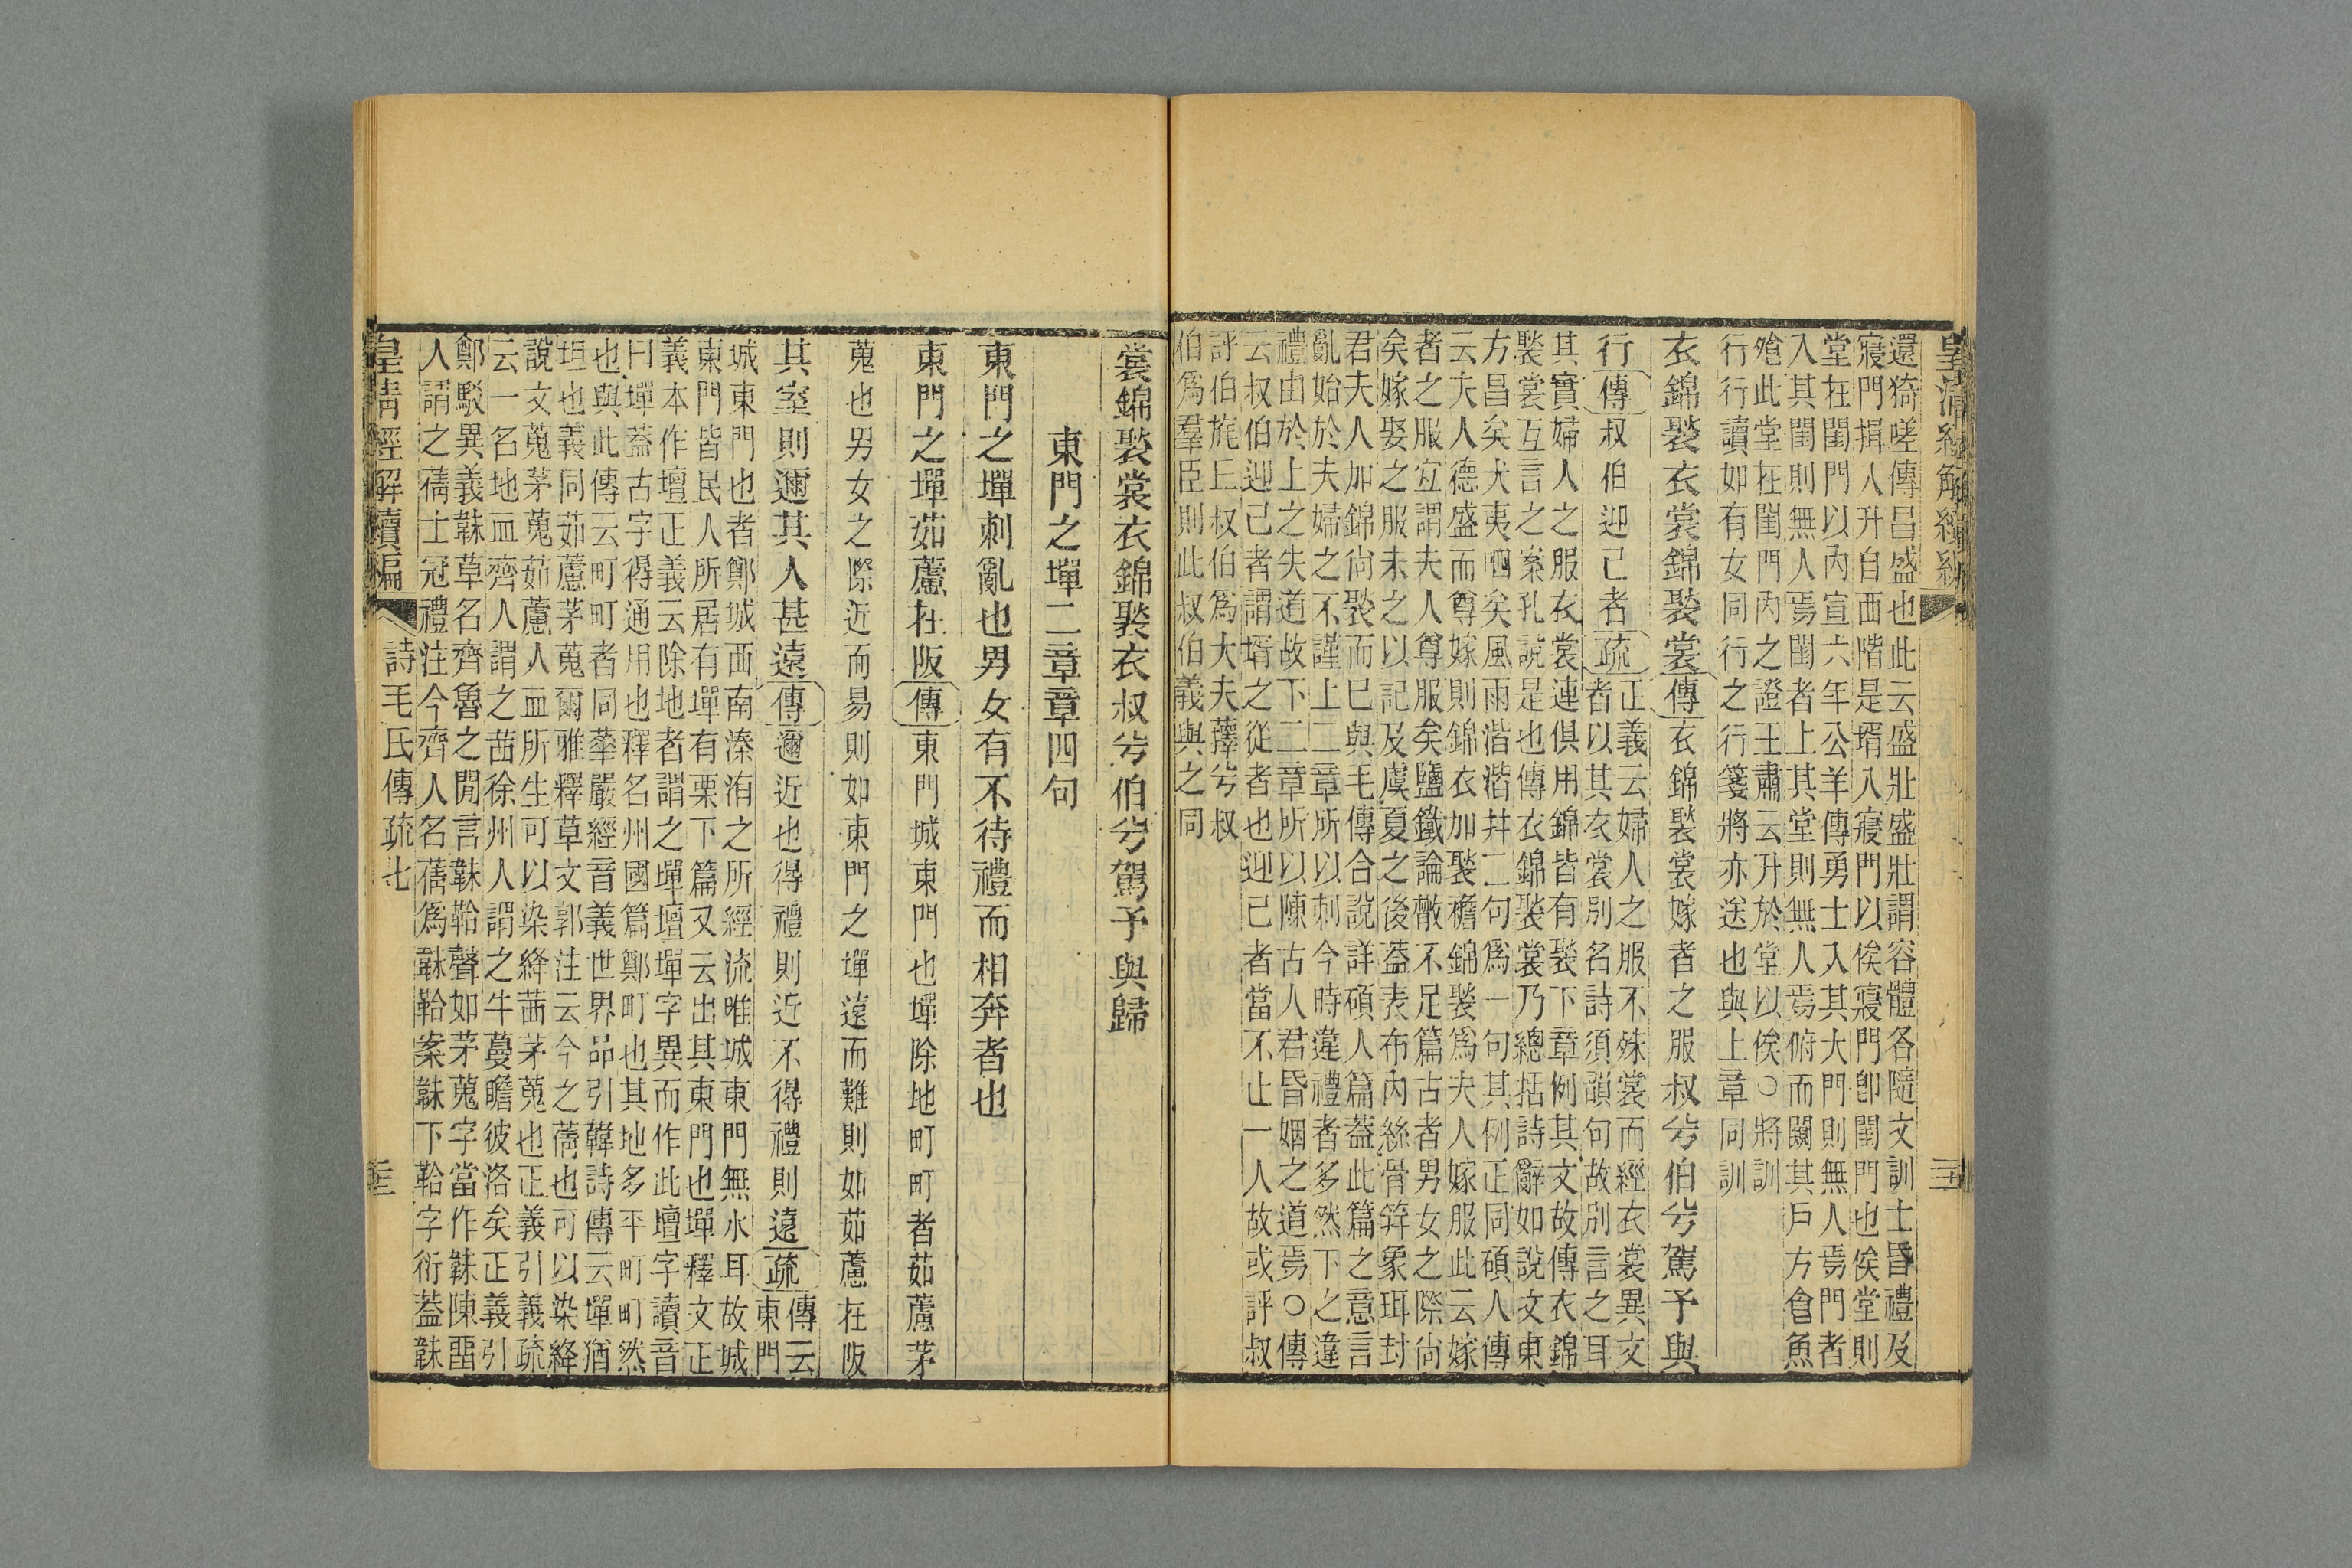 還猗嗟傳昌盛也此云盛壯盛壯謂容體各隨文訓士昏禮及
寢門揖入升自西階是壻入寢門以俟寢門卽閨門也俟堂則
堂在閨門以內宣六年公羊傳勇士入其大門則無人焉門者
入其閨則無人焉閨者上其堂則無人焉俯而闚其戶方食魚
飱此堂在閨門內之證王肅云升於堂以俟○將訓
行行讀如有女同行之行箋將亦送也與上章同訓
衣錦褧衣裳錦褧裳傳衣錦褧裳嫁者之服叔兮伯兮駕予與
行傳叔伯迎己者疏正義云婦人之服不殊裳而經衣裳異文
者以其衣裳別名詩須韻句故別言之耳
其實婦人之服衣裳連俱用錦皆有褧下章例其文故傳衣錦
褧裳互言之案孔說是也傳衣錦褧裳乃總括詩辭如說文東
方昌矣犬夷呬矣風雨湝湝井二句爲一句其例正同碩人傳
云夫人德盛而尊嫁則錦衣加褧襜錦褧爲夫人嫁服此云嫁
者之服宐謂夫人尊服矣鹽鐵論散不足篇古者男女之際尙
矣嫁娶之服未之以記及虞夏之後葢表布內絲骨筓象珥封
君夫人加錦尙褧而已與毛傳合說詳碩人篇葢此篇之意言
亂始於夫婦之不謹上二章所以刺今時違禮者多然下之違
禮由於上之失道故下二章所以陳古人君昏姻之道焉○傳
云叔伯迎己者謂壻之從者也迎己者當不止一人故或評叔
評伯旄丘叔伯爲大夫蘀兮叔
伯爲羣臣則此叔伯義與之同
裳錦褧裳衣錦褧衣叔兮伯兮駕予與歸
東門之墠二章章四句
東門之墠刺亂也男女有不待禮而相奔者也
東門之墠茹藘在阪傳東門城東門也墠除地町町者茹藘茅
蒐也男女之際近而易則如東門之墠遠而難則如茹藘在阪
其室則邇其人甚遠傳邇近也得禮則近不得禮則遠疏傳云
東門
城東門也者鄭城西南溱洧之所經流唯城東門無水耳故城
東門皆民人所居有墠有栗下篇又云出其東門也墠釋文正
義本作壇正義云除地者謂之墠壇墠字異而作此壇字讀音
曰墠葢古字得通用也釋名州國篇鄭町也其地多平町町然
也與此傳云町町者同華嚴經音義世界品引韓詩傳云墠猶
坦也義同茹藘茅蒐爾雅釋草文郭注云今之蒨也可以染絳
說文蒐茅蒐茹藘人血所生可以染絳茜茅蒐也正義引義疏
云一名地血齊人謂之茜徐州人謂之牛蔓瞻彼洛矣正義引
鄭駁異義韎草名齊魯之閒言韎韐聲如茅蒐字當作韎陳畱
人謂之蒨士冠禮注今齊人名蒨爲韎韐案韎下韐字衍葢韎
皇淸經解續編
詩毛氏傳疏七